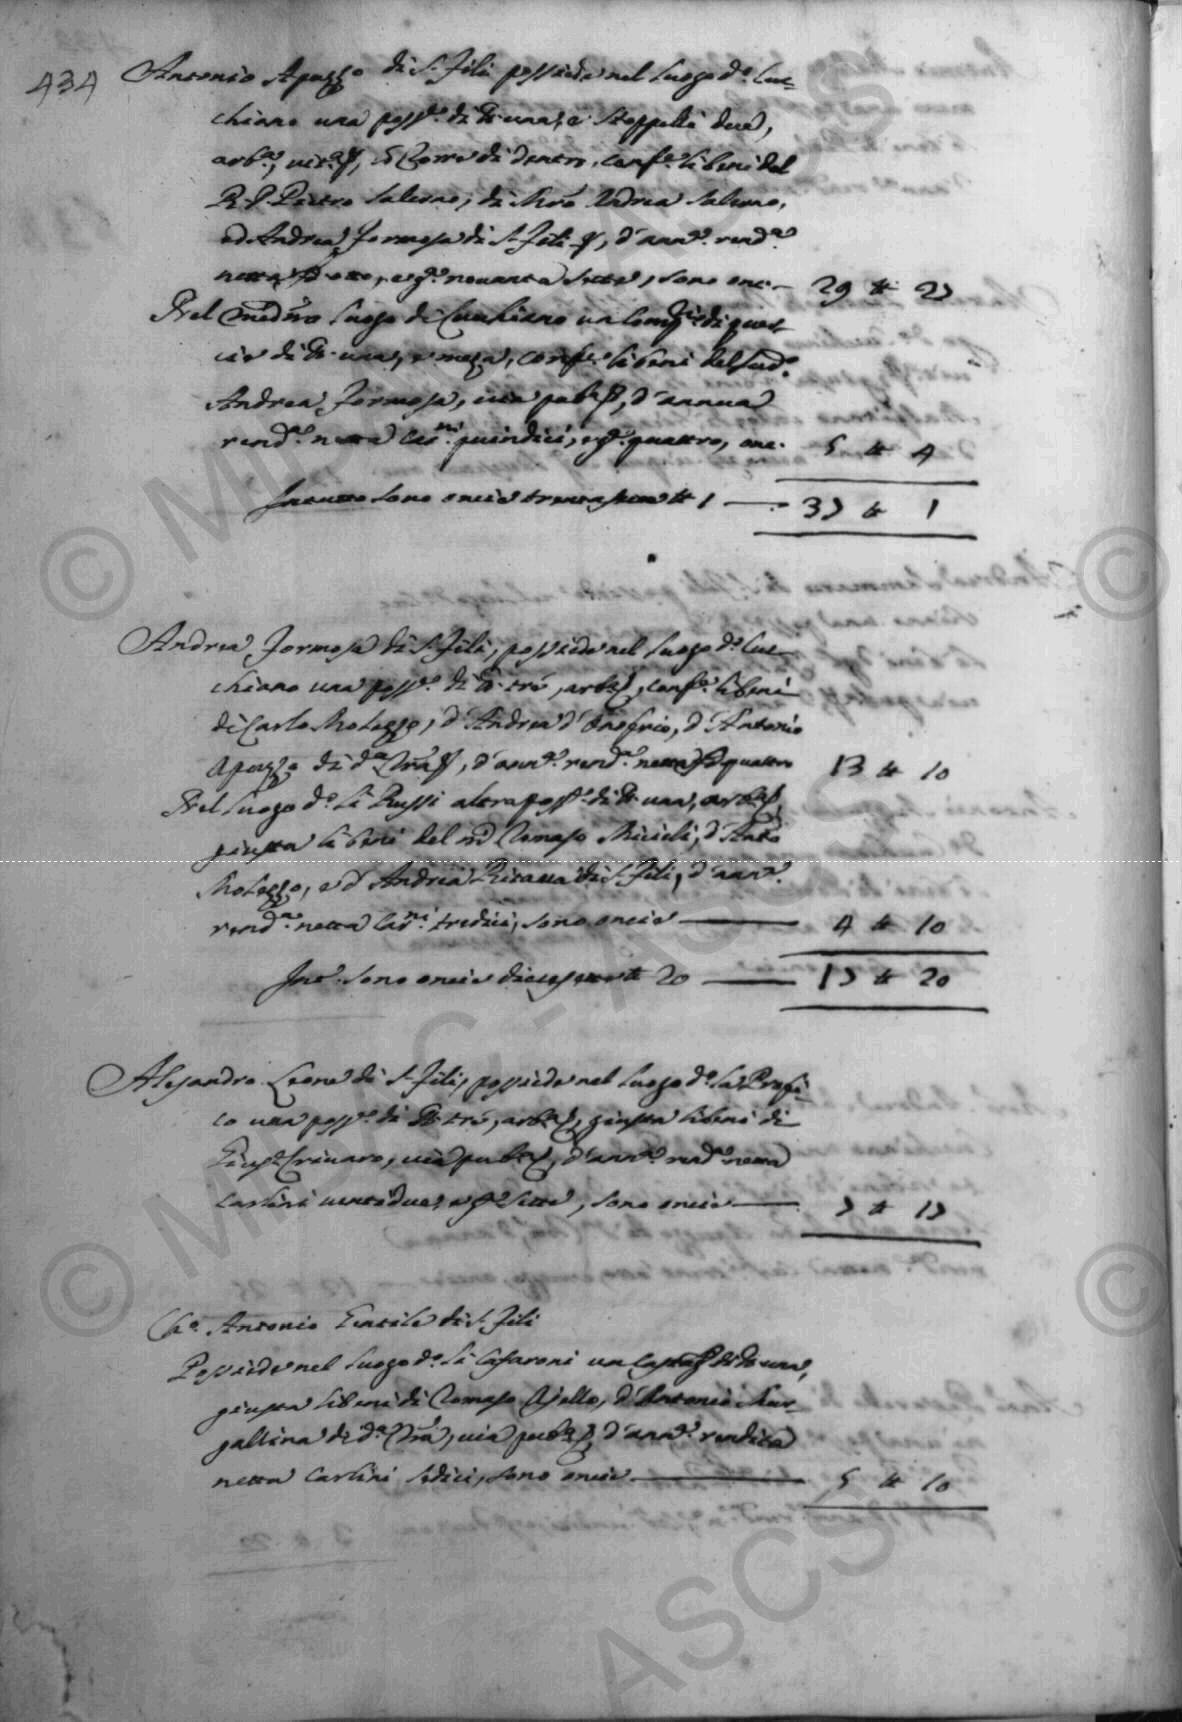 434
Antonio Apuzzo di S. Fili possiede nel luogo d.o Cuc-
chiano una poss.e di tt. una, e stoppelli due,
arb.a, vit.a, e Torre di dentro, conf.e li beni del
R. P. Pietro Salerno, di Mro Andrea Salerno,
ed Andrea Formosa di S. Fili, d'ann.a rend.a
netta otto, e g.a novanta sette, sono onc. 29 tt 27
Nel med.mo luogo di Cucchiano un di quer-
cie di tt. una, e meza, conf.e li beni del sud.o
Andrea Formosa, via pub.a, d'annua
rend.a netta Car.ni quindici, e g.a quattro, onc. 5 tt 4
In tutto sono oncie trentacinque tt 1 — 35 tt 1
Andrea Formosa di S. Fili, possiede nel luogo d.o Cuc-
chiano una poss.e di tt. tre, arb.a, conf.e li beni
di Carlo Molezzo, d'Andrea d'Onofrio, d'Antonio
Apuzzo di d.a Terra, d'ann.a rend.a netta quattro 13 tt 10
Nel luogo d.o li Russi altra poss.e di tt. una, arb.a,
giusta li beni del m.o Tomaso Miceli, d'Ant.o
Molezzo, e d'Andrea di S. Fili, d'ann.a
rend.a netta Car.ni tredici, sono oncie — 4 tt 10
In t.o sono oncie diecisette tt 20 — 17 tt 20
Alesandro Leone di S. Fili, possiede nel luogo d.o la Profi-
co una poss.e di tt. tre, arb.a, giusta li beni di
Gius.e Crivaro, via pub.a, d'ann.a rend.a netta
Carlini ventidue, e g.a sette, sono oncie — 7 tt 17
Ch.o Antonio Gentile di S. Fili
Possiede nel luogo d.o li Casaroni un di tt. una,
giusta li beni di Tomaso Ajello, d'Antonio Mar-
gallina di d.a Terra, via pub.a, d'ann.a rendita
netta Carlini sedici, sono oncie — 5 tt 10
© MIBAC - ASCS